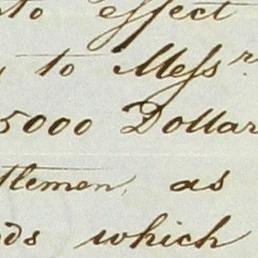 to effect
, to Messrs.
5000 Dollar
tlemen, as
ds which